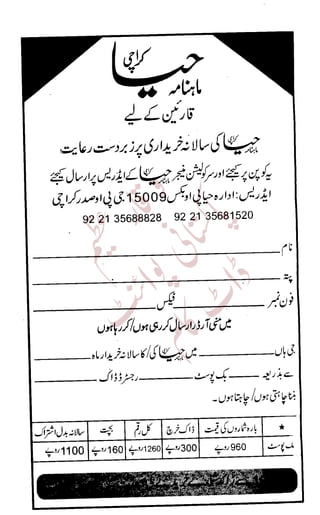 ماہنامہ حیا کراچی
قارئین کے لیے
ماہنامہ حیا کراچی کی سالانہ خریداری پر زبردست رعایت
یہ کوپن پر کیجئے اور سرکولیشن منیجر حیا کے ایڈریس پر ارسال کیجئے
ایڈریس: ادارہ حیا پی او بکس 15009 جی پی او صدر کراچی
92 21 35688828   92 21 35681520
نام
پتہ
فون نمبر                فیکس
میں منی آرڈر ارسال کر رہی ہوں/ کر رہا ہوں
جی ہاں            میں حیا کی/ کا سالانہ خریدار ماہ
سے بذریعہ            بک پوسٹ            رجسٹرڈ ڈاک
بننا چاہتی ہوں/ چاہتا ہوں۔
★ بارہ شماروں کی قیمت ڈاک خرچ کل رقم بچت سالانہ بدل اشتراک
بک پوسٹ 960 روپے 300 روپے 1260 روپے 160 روپے 1100 روپے